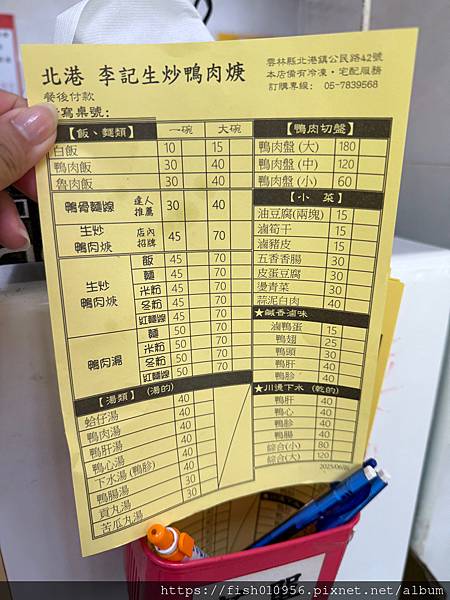 北港 李記生炒鴨肉焿
雲林縣北港鎮公民路42號
本店備有冷凍‧宅配服務
訂購專線: 05-7839568
餐後付款
寫桌號:
【飯、麵類】 一碗 大碗
白飯 10 15
鴨肉飯 30 40
魯肉飯 30 40
鴨骨麵線 達人推薦 30 40
生炒鴨肉焿 店內招牌 45 70
生炒鴨肉焿
飯 45 70
麵 45 70
米粉 45 70
冬粉 45 70
紅麵線 45 70
鴨肉湯
麵 50 70
米粉 50 70
冬粉 50 70
紅麵線 50 70
【湯類】 (湯的)
蛤仔湯 40
鴨肉湯 40
鴨肝湯 40
鴨心湯 40
下水湯(鴨胗) 40
鴨腸湯 40
貢丸湯 30
苦瓜丸湯 40
【鴨肉切盤】
鴨肉盤(大) 180
鴨肉盤(中) 120
鴨肉盤(小) 60
【小 菜】
油豆腐(兩塊) 15
滷筍干 15
滷豬皮 15
五香香腸 30
皮蛋豆腐 30
燙青菜 30
蒜泥白肉 40
★鹹香滷味
滷鴨蛋 15
鴨翅 25
鴨頭 30
鴨肝 40
鴨胗 40
★川燙下水 (乾的)
鴨肝 40
鴨心 40
鴨胗 40
鴨腸 40
綜合(小) 80
綜合(大) 120
https://fish010956.pixnet.net/album